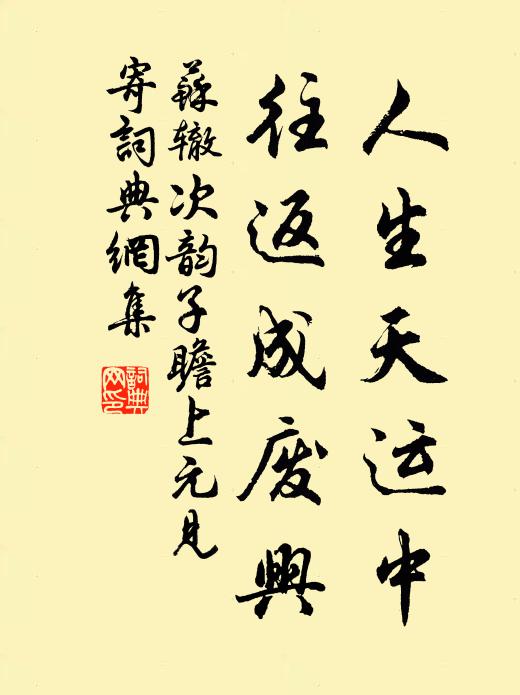 人生天运中
往返成废興
蘇辙次韵子瞻上元見
寄詞典網集
詞典
网印